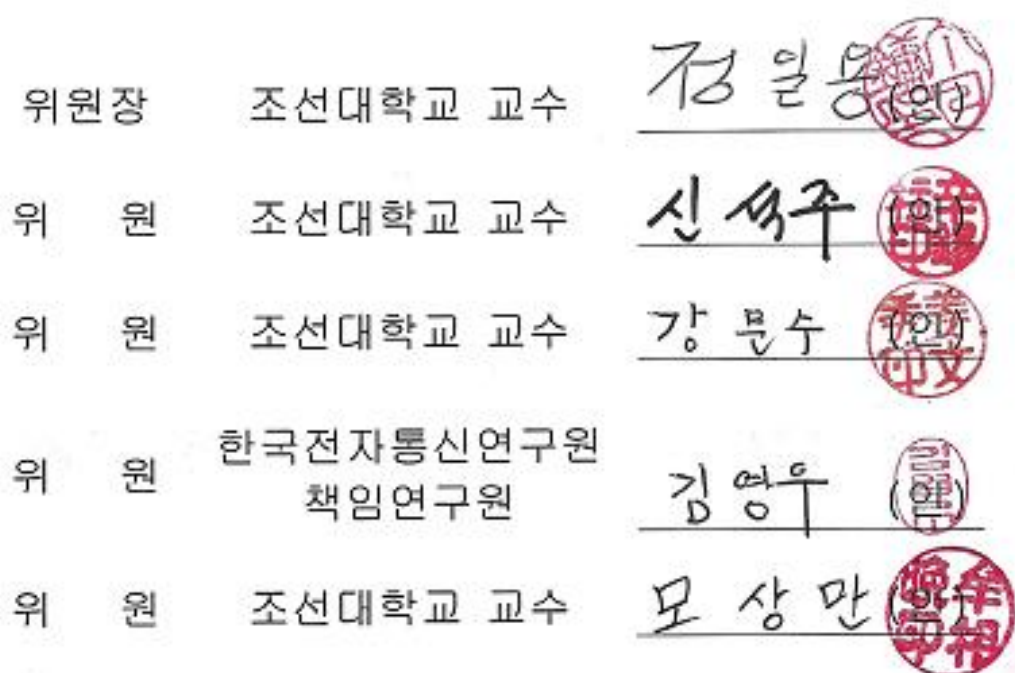 위원장 조선대학교 교수 정일용 (인)
위 원 조선대학교 교수 신석주 (인)
위 원 조선대학교 교수 강문수 (인)
위 원 한국전자통신연구원
책임연구원 김영우 (인)
위 원 조선대학교 교수 모상만 (인)